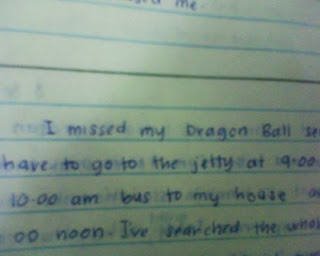 me.
I missed my Dragon Ball se
have to go to the jetty at 9.00
10.00 am bus to my house a
00 noon. I've searched the whol